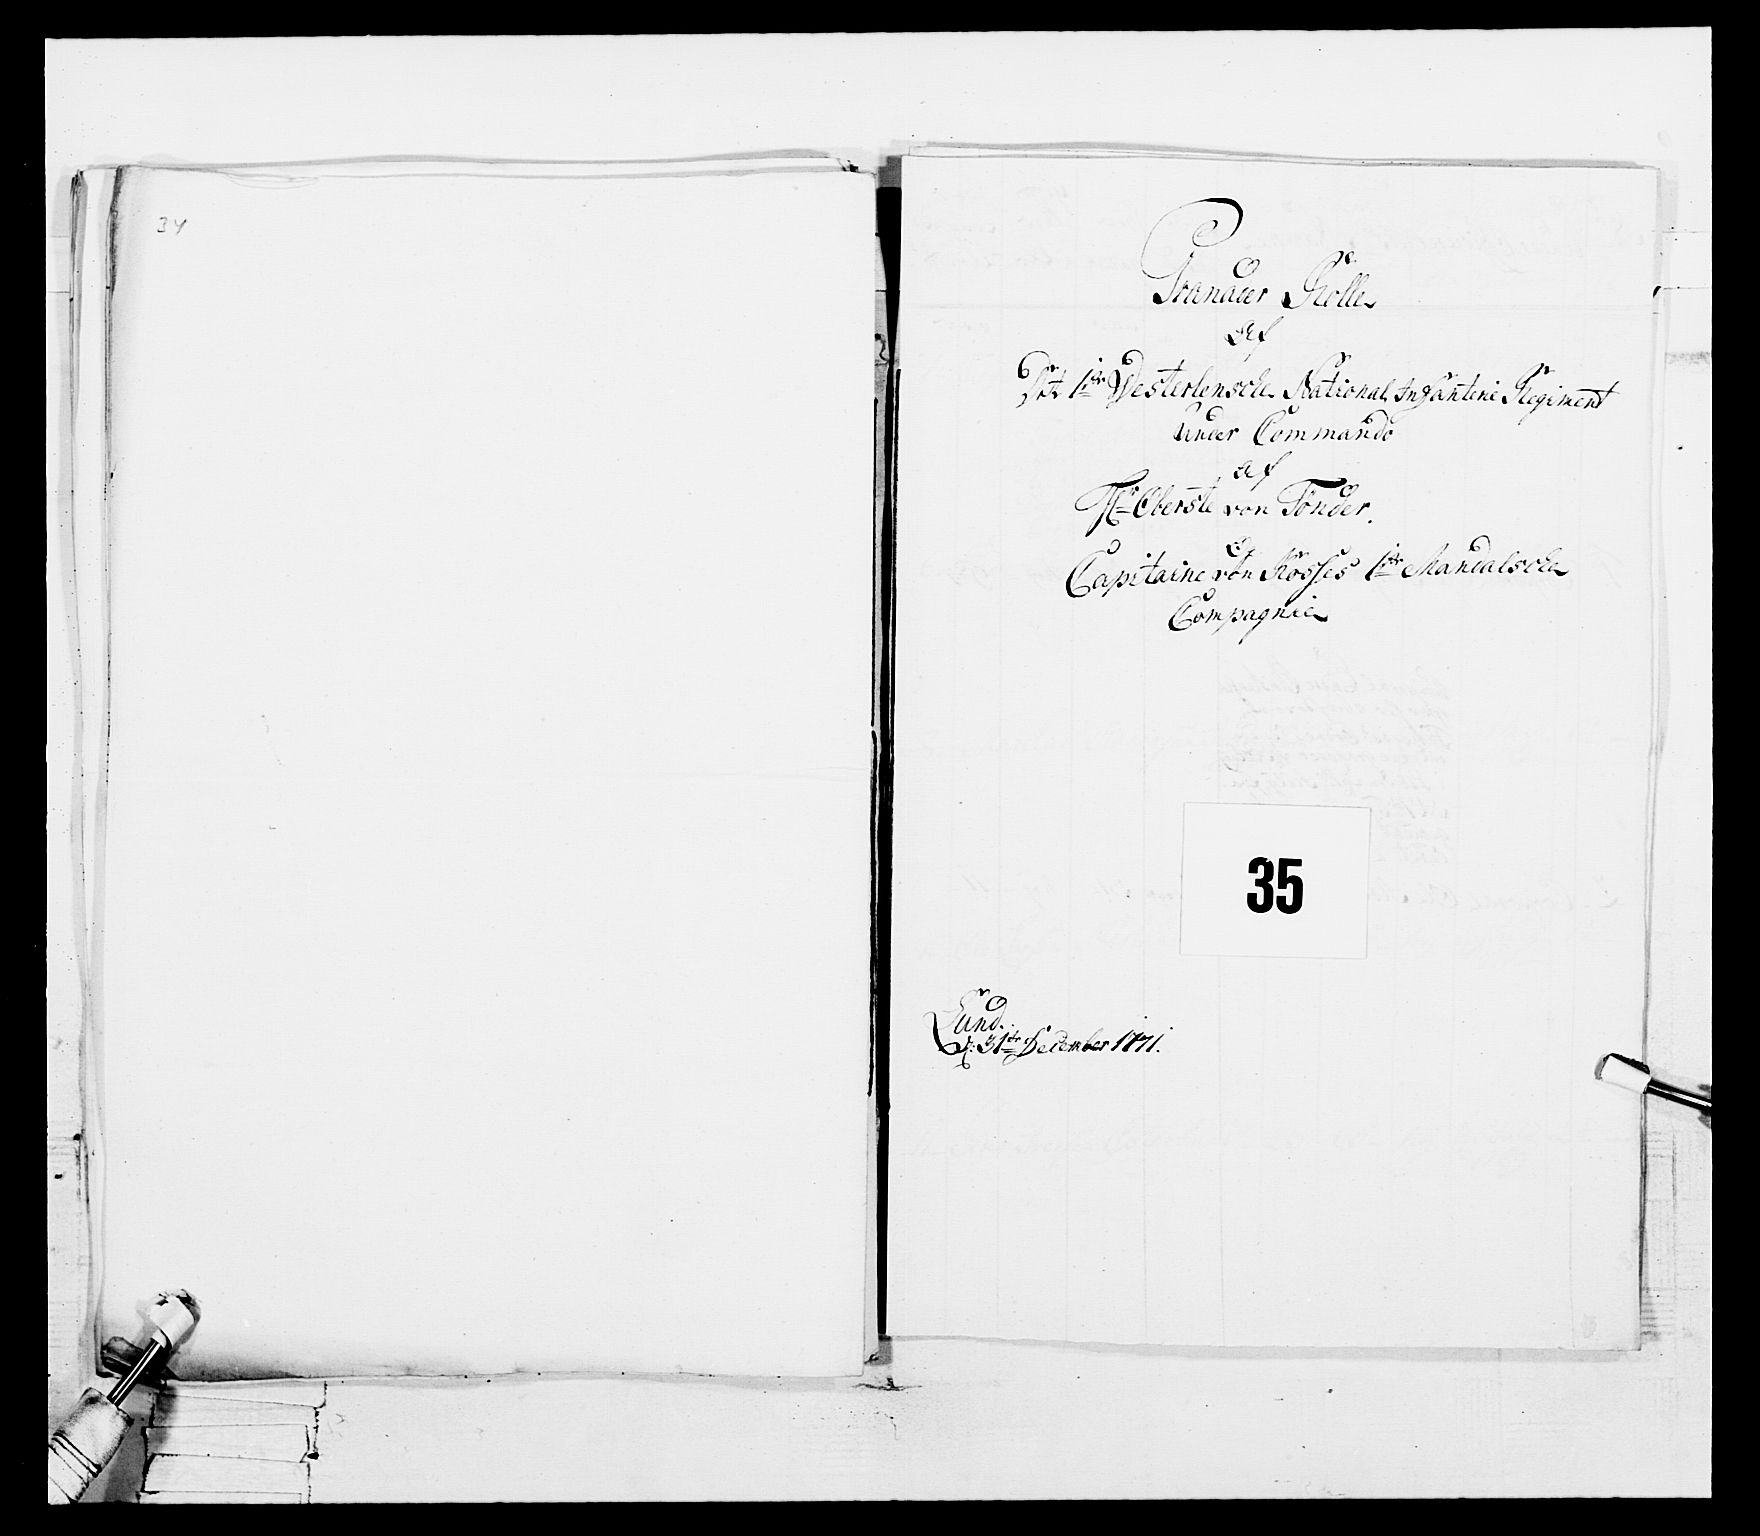 34
Granadeer Rolle
Af
Det 1ste Vesterlenske National Infanterie Regiment
Under Commando
af
Hr Oberste von Tønder.
Af
Capitaine von Kosses 1ste Mandalske
Compagnie
35
Lund.
d: 31te December 1771.